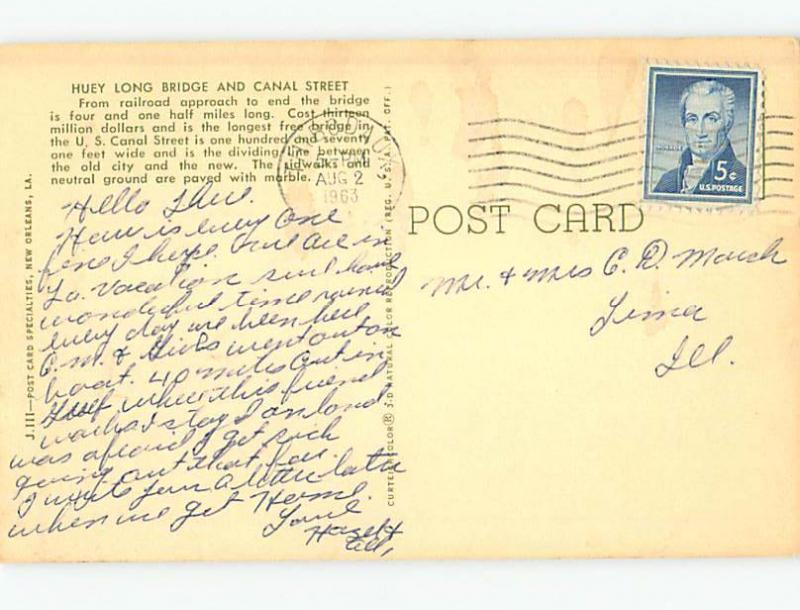 HUEY LONG BRIDGE AND CANAL STREET
From railroad approach to end the bridge
is four and one half miles long. Cost thirteen
million dollars and is the longest free bridge in
the U. S. Canal Street is one hundred and seventy
one feet wide and is the dividing line between
the old city and the new. The sidwalks and
neutral ground are paved with marble.
AUG 2
1963
Hello
How is every one
fine I hope. We are in
La. vacation sure have
wonderful time rained
every day we been here
C.M. & went out on
boat. 40 miles out in
Gulf where this friend
works I stay I on land.
was afraid I get sick
going out that far.
I write you a letter later
when we get Home.
Love
Hazel &
all,
J.111—POST CARD SPECIALTIES, NEW ORLEANS, LA.
CURTEICHCOLOR® 3-D NATURAL COLOR REPRODUCTION (REG. U.S. PAT. OFF.)
POST CARD
MONROE
5¢
U.S. POSTAGE
Mr. & Mrs C. D. March
Lima
Ill.